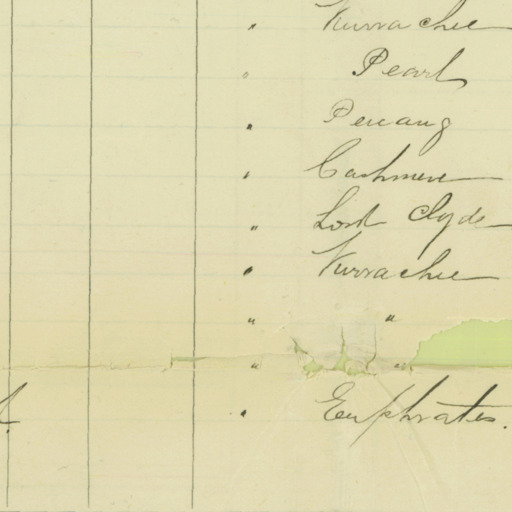 " Kurrachee
" Pearl
" Penang
" Cashmere
" Lord Clyde
" Kurrachee
" "
" "
" Euphrates.